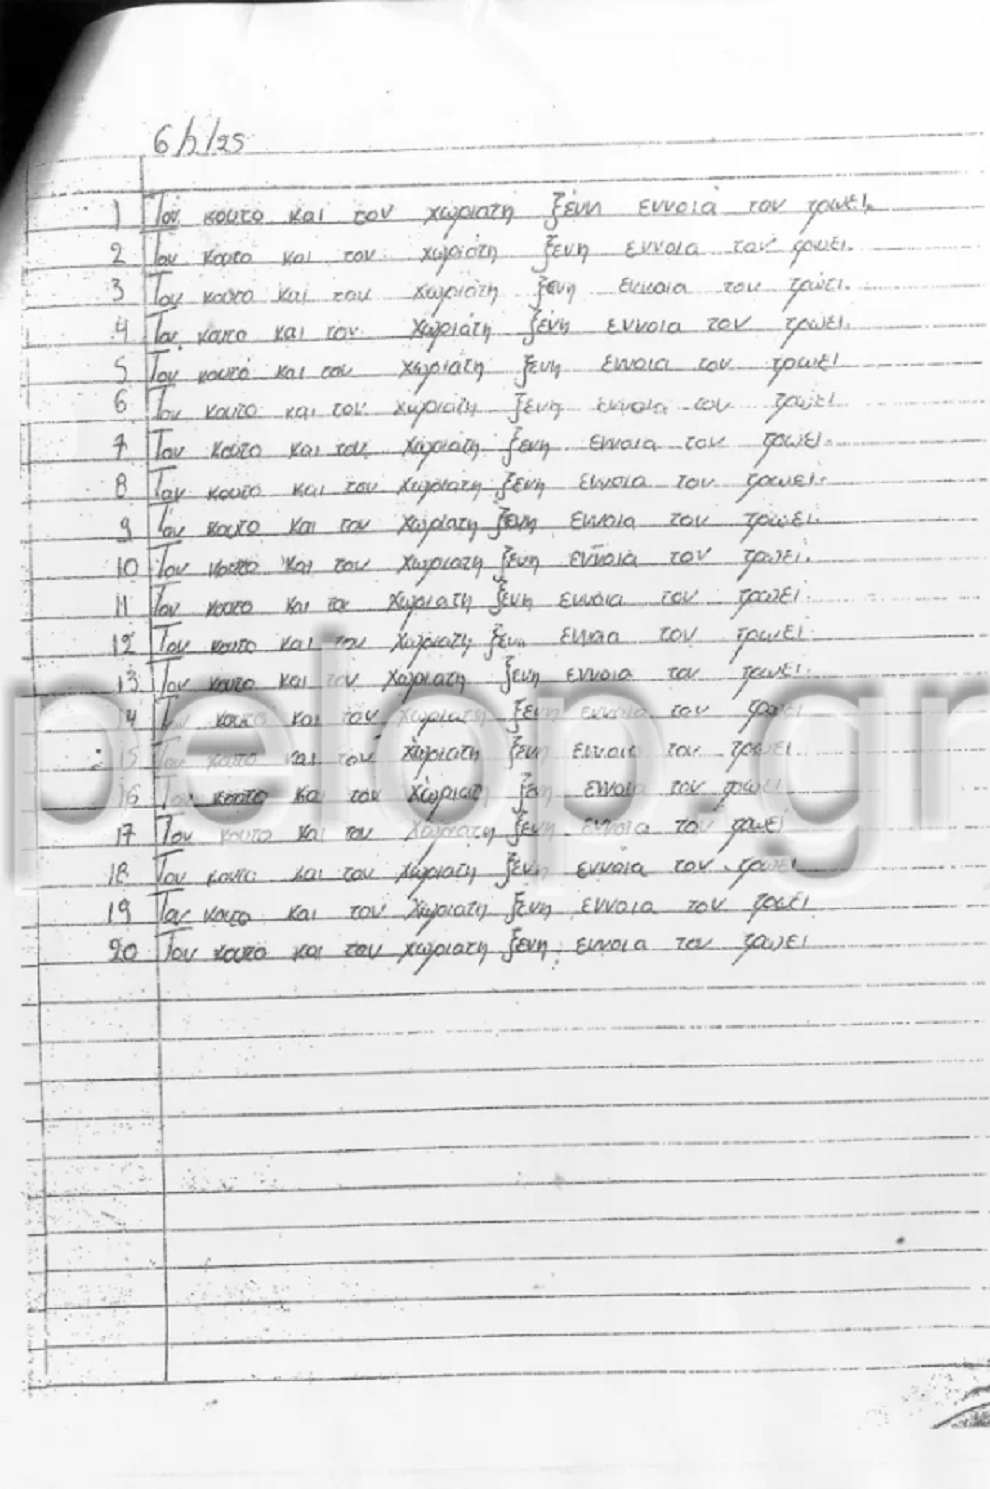 6/2/25
1 Τον κουτο και τον χωριατη ξένη εννοιά τον τρωει.
2 Τον κουτο και τον χωριάτη ξενη εννοια τον τρωει.
3 Τον κουτο και τον χωριάτη ξενη εννοια τον τρώει.
4 Τον κουτο και τον χωριάτη ξένη εννοια τον τρωει.
5 Τον κουτό και τον χωριάτη ξενη εννοια τον τρωει
6 Τον κουτο και τον χωριατη ξενη εννοια τον τρώει
7 Τον κουτο και τον χωριατη ξενη εννοια τον τρωει.
8 Τον κουτο και τον χωριατη ξενη εννοια τον τρωει.
9 Τον κουτο και τον χωριατη ξενη εννοια τον τρωει.
10 Τον κουτο και τον χωριατη ξενη εννοια τον τρωει.
11 Τον κουτο και τον χωριατη ξενη εννοια τον τρωει.
12 Τον κουτο και τον χωριατη ξενη εννοια τον τρωει
13 Τον κουτο και τον χωριατη ξενη εννοια τον τρωει.
14 Τον κουτο και τον χωριατη ξενη εννοια τον τρωει
15 Τον κουτο και τον χωριατη ξενη εννοια τον τρωει
16 Τον κουτο και τον χωριατη ξενη εννοια τον τρωει
17 Τον κουτο και τον χωριατη ξενη εννοια τον τρωει
18 Τον κουτο και τον χωριατη ξενη εννοια τον τρωει
19 Τον κουτο και τον χωριατη ξενη εννοια τον τρωει
20 Τον κουτο και τον χωριατη ξενη εννοια τον τρωει
pelop.gr